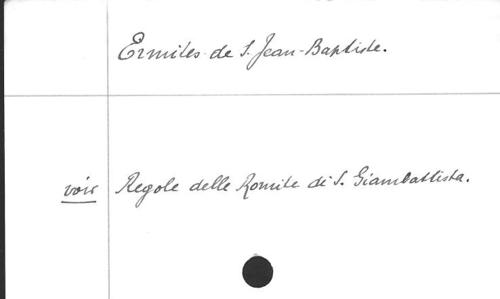 Ermites de S. Jean-Baptiste.
voir Regole delle Romite di S. Giambattista.